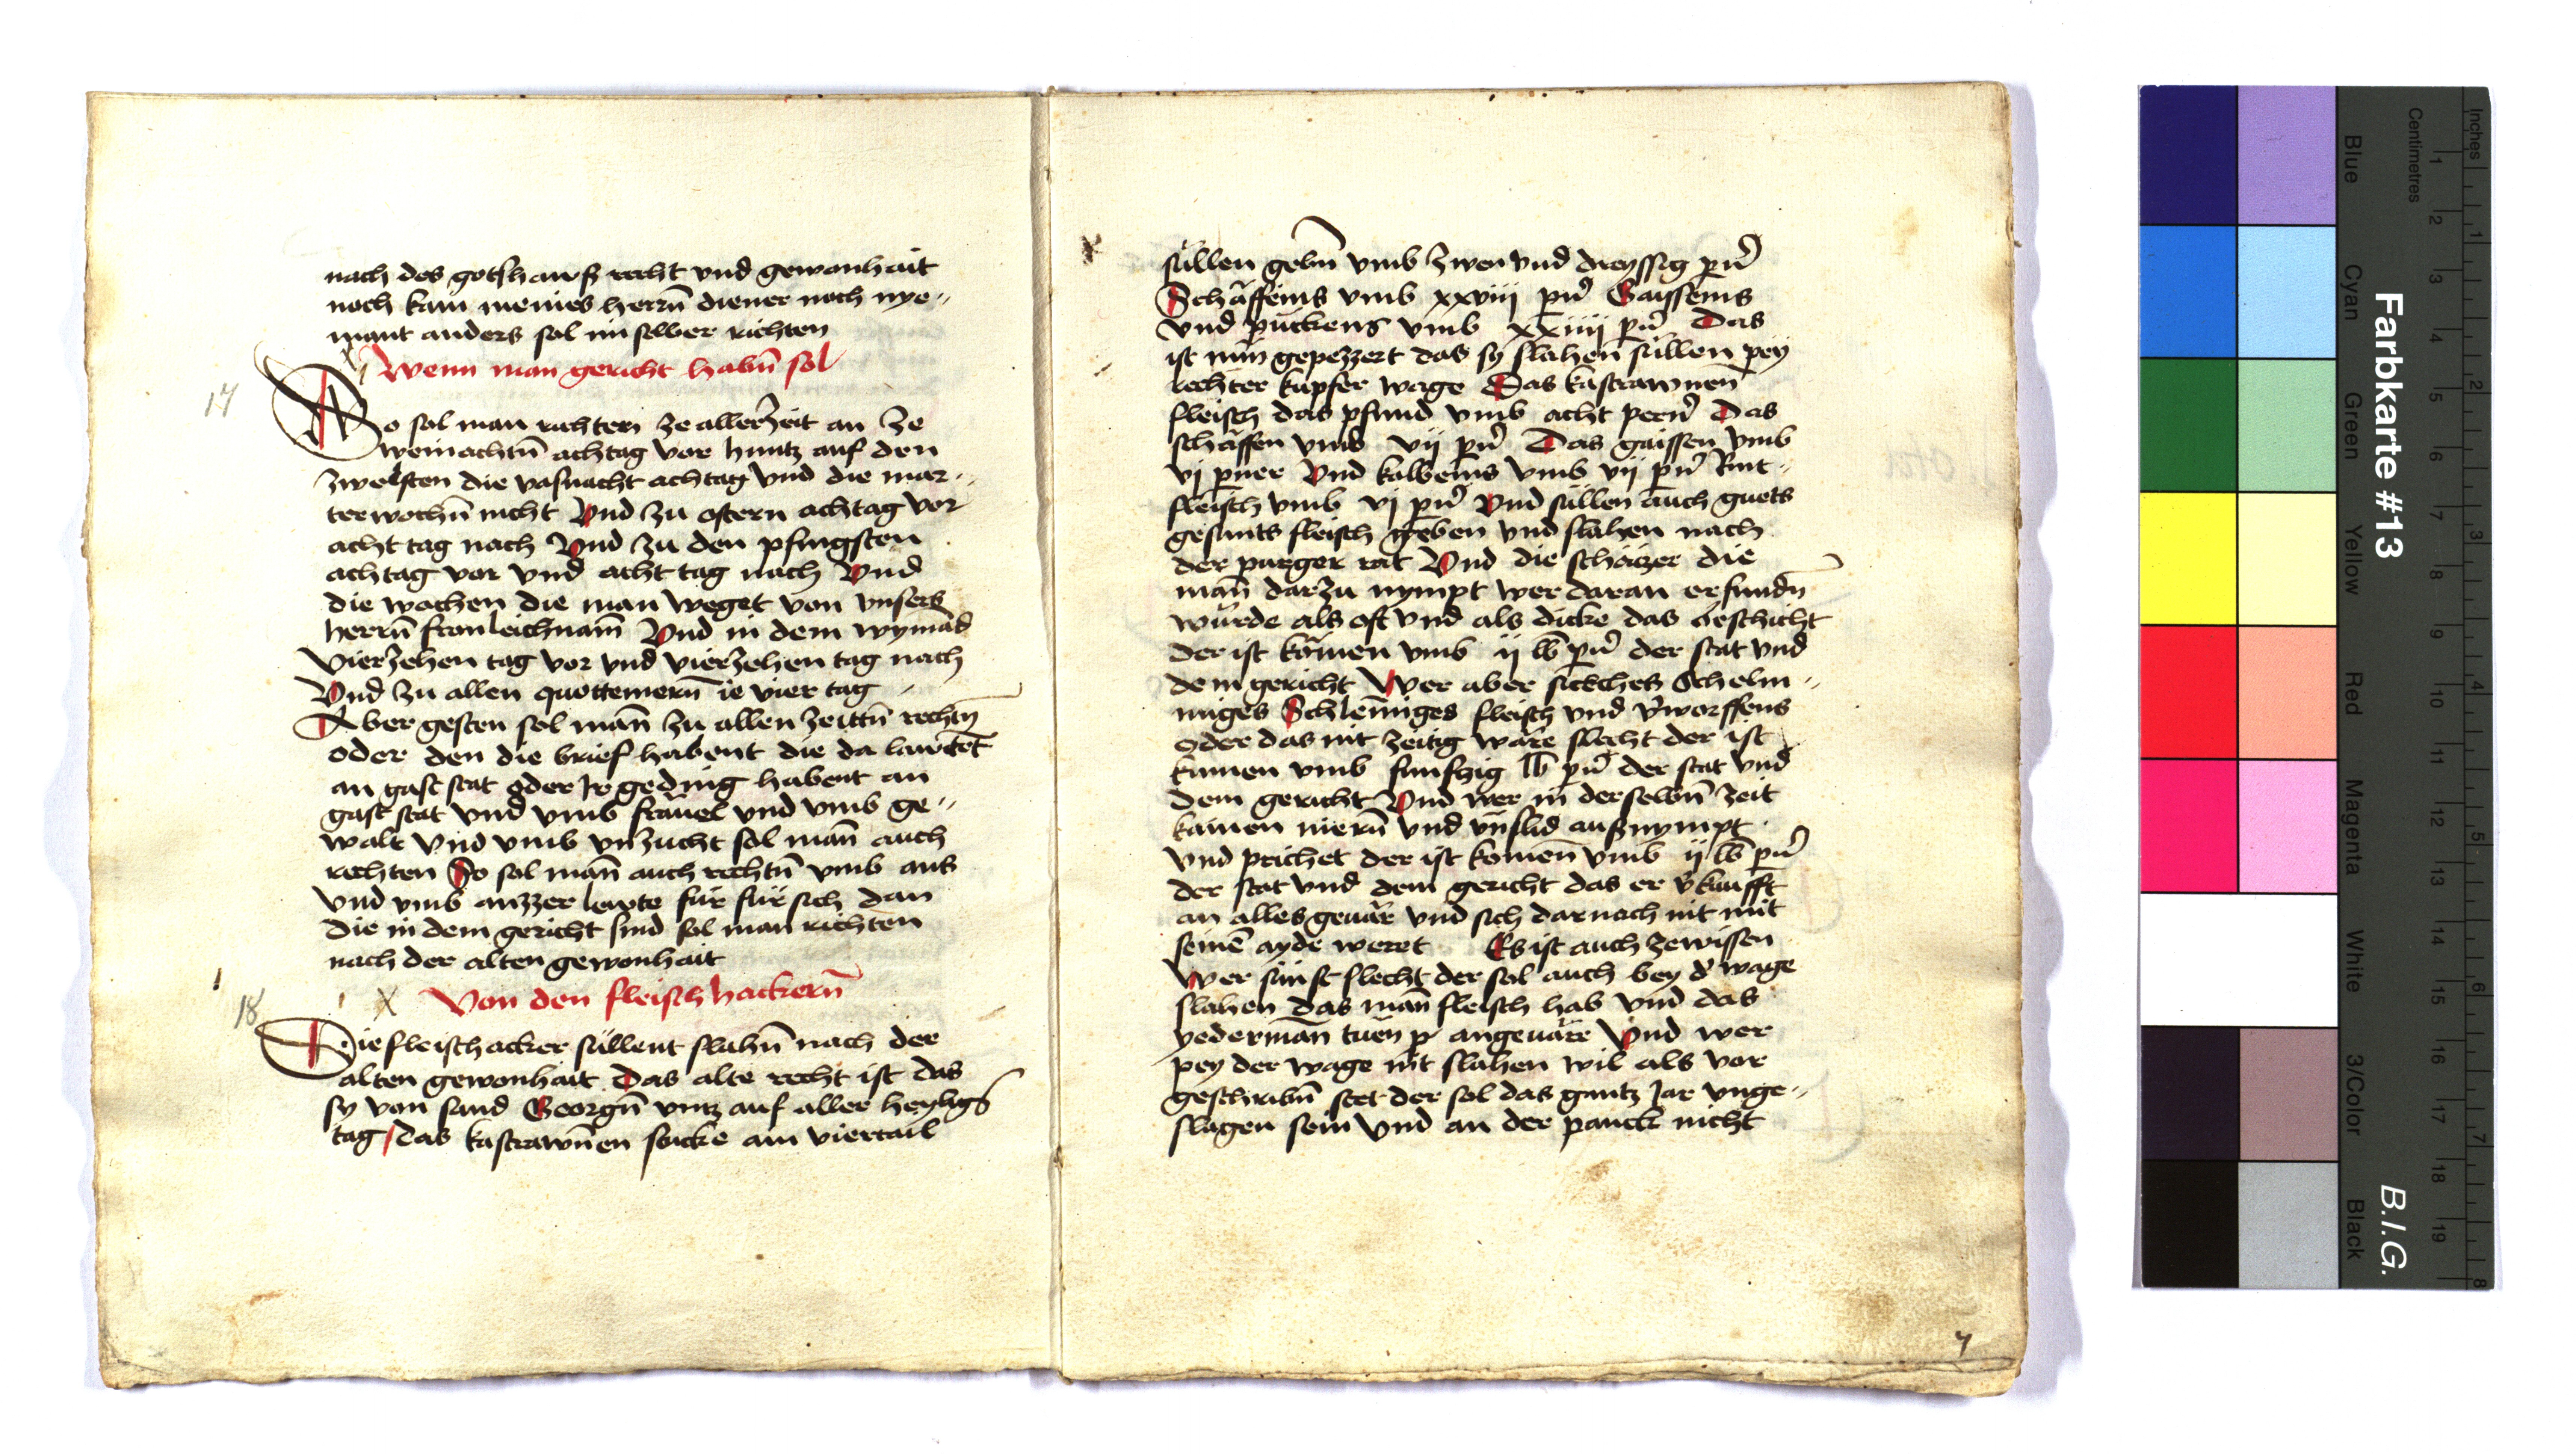 nach des gotshauß recht vnd gewonhait
noch kain meines herrn̄ diener noch nye〃
mant anders sol im selber richten
Wenn man gericht habn̄ sol
17
So sol man richten ze aller zeit an ze
weinachtn̄ achtag vor huntz auf den
zwelften die vasnacht achtag vnd die mar〃
terwochn̄ nicht Vnd zu ostern achtag vor
acht tag nach Vnd zu den pfingsten
achtag vor vnd acht tag nach Vnd
die wochen die man weget von vnsers
herrn̄ fronleichnam̄ Vnd in dem wymad
vierzehen tag vor vnd vierzehen tag nach
Vnd zu allen quottemern̄ ie vier tag
Aber gesten sol man̄ zu allen zeittn̄ rechtn̄
oder den die brief habent die da lawtet̄
an gast stat oder Jr geding habent an
gast stat vnd vmb frauel vnd vmb ge〃
walt vnd vmb vnzucht sol man̄ auch
rechten So sol man̄ auch rechtn̄ vmb aus
vnd vmb auzzer lewte für für sich dan
die in dem gericht sind sol man richten
nach der alten gewonhait
18
X Von den fleischhackern̄
Die fleischacker süllent slahn̄ nach der
alten gewonhait Das alte recht ist das
sy von sand Georgn̄ vntz auf aller heyligs
tag das kastrawn̄en stucke ain viertail
süllen gebn̄ vmb zwen vnd dreyssig pn̄
Schäffeins vmb xxviii pn̄ Gaisseins
vnd puckens vmb xxiiii pn̄ Das
ist nun gepezzert das sy slahen süllen pey
rechter kupfer wage Das kastrawnen
fleisch das pfund vmb acht pern̄ Das
schäffen vmb vij pn̄ Das gaissen vmb
vj pner Vnd kelbeins vmb vij pn̄ Rint〃
fleisch vmb vj pn̄ Vnd süllen auch guets
gesunts fleisch geben vnd slahen nach
der purger rat Vnd die schäczer die
man̄ darzu nympt wer daran erfundn̄
würde als oft vnd als dicke das geschicht
der ist komen vmb ij lb pn̄ der stat vnd
dem gericht Wer aber sieches Schelm〃
miges Schlem̄iges fleisch vnd v̄worffens
oder das nit zeitig wäre slecht der ist
kumen vmb funfzig lb pn̄ der stat vnd
dem gericht Vnd wer in derselbn̄ zeit
kainen niern̄ vnd vnslid außnympt
vnd prichet der ist komen vmb ij lb pn̄
der stat vnd dem gericht das er v̄kaufft
an alles geuär vnd sich darnach nit mit
seinē ayde weret Es ist auch zewissen
Wer sunst slecht der sol auch bey d̄ wage
slahen das man̄ fleisch hab vnd das
yederman̄ tuen angeuäre Vnd wer
pey der wage nit slahen wil als vor
geschribn̄ stet der sol das gantz Jar vnge〃
slagen sein vnd an der panck nicht
7
Farbkarte #13
B.I.G.
Inches
Centimetres
Blue
Cyan
Green
Yellow
Red
Magenta
White
3/Color
Black